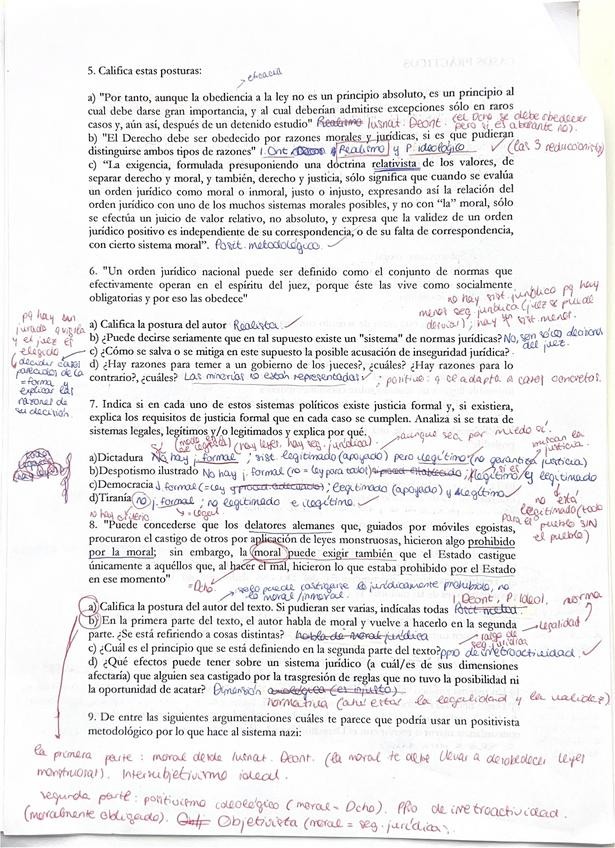 5. Califica estas posturas:
eficacia
a) "Por tanto, aunque la obediencia a la ley no es un principio absoluto, es un principio al
cual debe darse gran importancia, y al cual deberían admitirse excepciones sólo en raros
casos y, aún así, después de un detenido estudio" Realismo Iusnat. Deont. (el Dcho se debe obedecer
pero si es aberrante no).
b) "El Derecho debe ser obedecido por razones morales y jurídicas, si es que pudieran
distinguirse ambos tipos de razones" I. Ont Realismo y P. ideológico (las 3 reduccionistas)
c) "La exigencia, formulada presuponiendo una doctrina relativista de los valores, de
separar derecho y moral, y también, derecho y justicia, sólo significa que cuando se evalúa
un orden jurídico como moral o inmoral, justo o injusto, expresando así la relación del
orden jurídico con uno de los muchos sistemas morales posibles, y no con "la" moral, sólo
se efectúa un juicio de valor relativo, no absoluto, y expresa que la validez de un orden
jurídico positivo es independiente de su correspondencia, o de su falta de correspondencia,
con cierto sistema moral". Posit. metodológico
6. "Un orden jurídico nacional puede ser definido como el conjunto de normas que
efectivamente operan en el espíritu del juez, porque éste las vive como socialmente
obligatorias y por eso las obedece"
no hay sist. jurídico pq hay
menos seg. jurídica (juez se puede
desviar); hay sist. menor.
a) Califica la postura del autor Realista.
b) ¿Puede decirse seriamente que en tal supuesto existe un "sistema" de normas jurídicas? No, son sólo decisiones
del juez.
c) ¿Cómo se salva o se mitiga en este supuesto la posible acusación de inseguridad jurídica?
d) ¿Hay razones para temer a un gobierno de los jueces?, ¿cuáles? ¿Hay razones para lo
contrario?, ¿cuáles? Las minorías no están representadas; positivo: q se adapta a casos concretos.
pq hay un
jurado q vigila
y el juez es
elegido
decidir casos
parecidos de la
= forma y
explicar las
razones de
su decisión.
7. Indica si en cada uno de estos sistemas políticos existe justicia formal y, si existiera,
explica los requisitos de justicia formal que en cada caso se cumplen. Analiza si se trata
de sistemas legales, legítimos y/o legitimados y explica por qué.
(hay leyes, hay seg. jurídica). aunque sea por miedo
a)Dictadura No hay j. formal; sist. legitimado (apoyado) pero ilegítimo (no garantiza justicia)
b)Despotismo ilustrado No hay j. formal (no = ley para todos) ; ilegítimo y legitimado
c)Democracia j. formal (= ley ); legitimado (apoyado) y legítimo
d)Tiranía no j. formal; no legitimado e ilegítimo.
no hay criterio = legal
no está
legitimado (todo
para el pueblo SIN
el pueblo)
8. "Puede concederse que los delatores alemanes que, guiados por móviles egoístas,
procuraron el castigo de otros por aplicación de leyes monstruosas, hicieron algo prohibido
por la moral; sin embargo, la moral puede exigir también que el Estado castigue
únicamente a aquéllos que, al hacer el mal, hicieron lo que estaba prohibido por el Estado
en ese momento"
= Dcho.
solo puede castigarse lo jurídicamente prohibido, no
lo moral/inmoral.
a) Califica la postura del autor del texto. Si pudieran ser varias, indícalas todas I. Deont, P. Ideol. norma
b) En la primera parte del texto, el autor habla de moral y vuelve a hacerlo en la segunda
parte. ¿Se está refiriendo a cosas distintas? habla de moral jurídica legalidad
seg. jurídica
c) ¿Cuál es el principio que se está definiendo en la segunda parte del texto? ppio de irretroactividad.
d) ¿Qué efectos puede tener sobre un sistema jurídico (a cuál/es de sus dimensiones
afectaría) que alguien sea castigado por la trasgresión de reglas que no tuvo la posibilidad ni
la oportunidad de acatar? Dimensión axiológica (es injusto)
normativa (ahí están la legalidad y la validez)
9. De entre las siguientes argumentaciones cuáles te parece que podría usar un positivista
metodológico por lo que hace al sistema nazi:
la primera parte: moral desde Iusnat. Deont. (la moral te debe llevar a desobedecer leyes
monstruosas). Intersubjetivismo ideal.
segunda parte: positivismo ideológico (moral = Dcho). PPo de irretroactividad.
(moralmente obligado). Objetivista (moral = seg. jurídica).